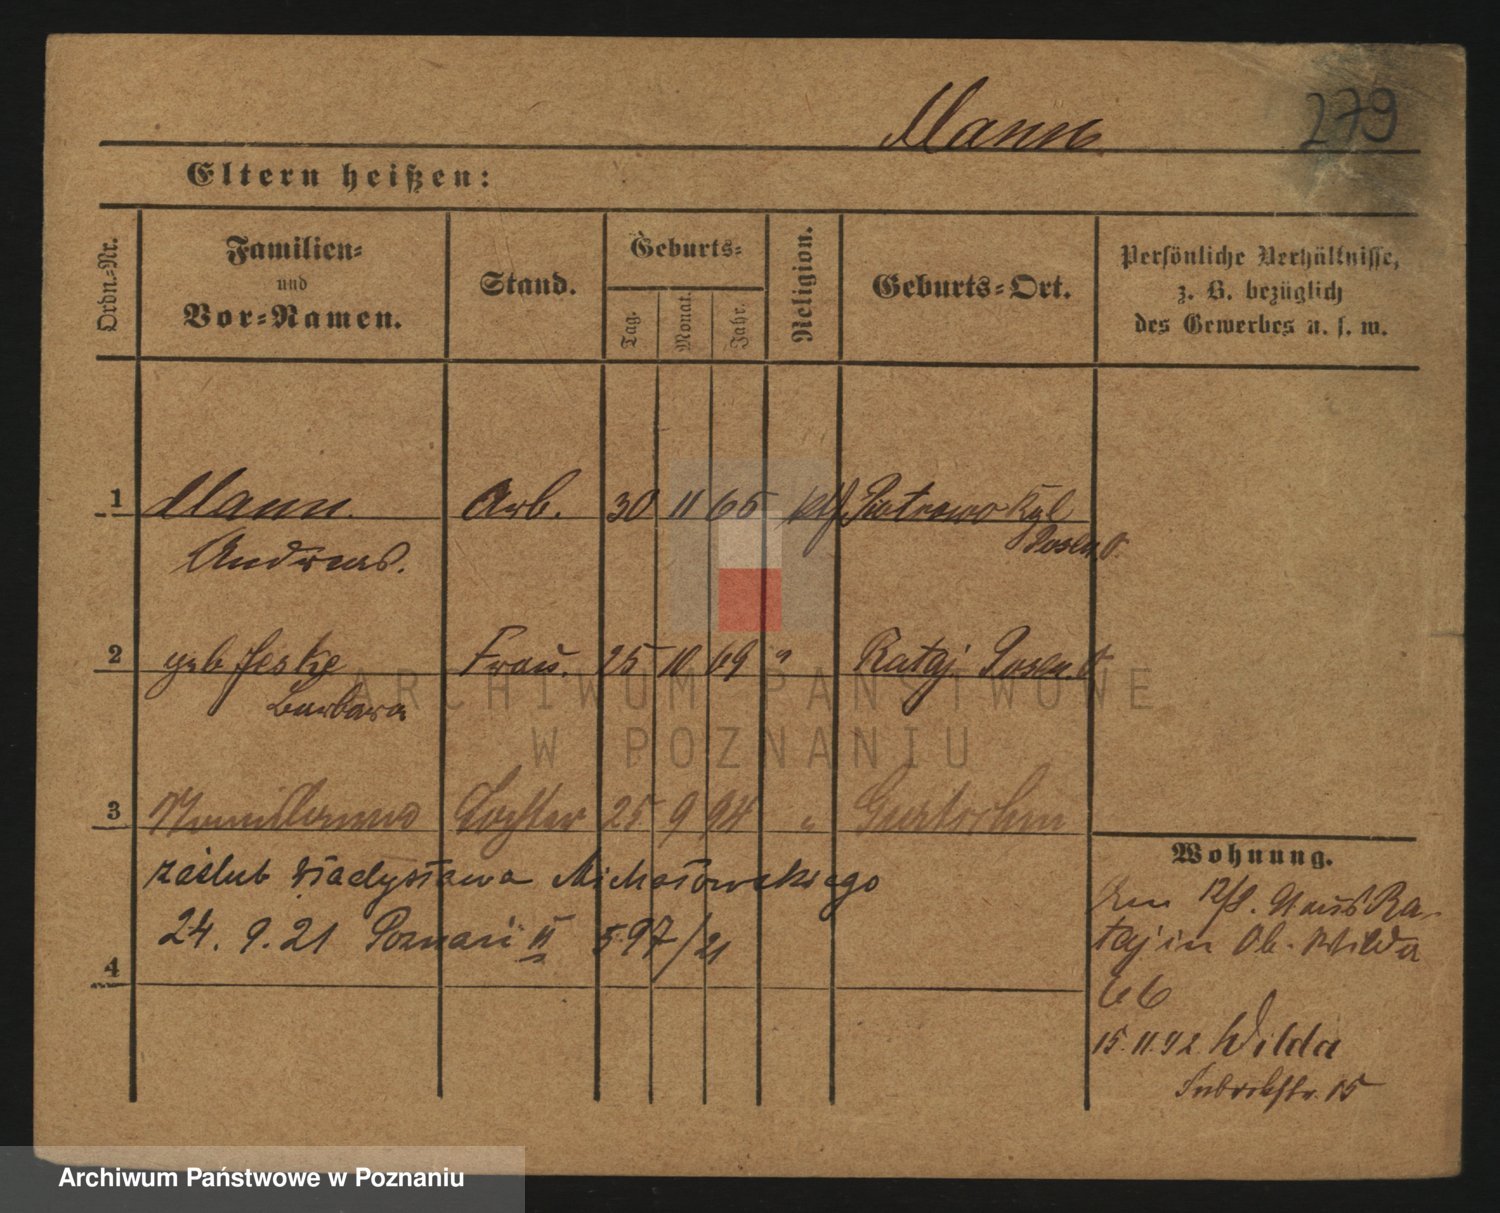 Mann
279
Eltern heißen:
Ordn.-Nr.
Familien-
und
Vor-Namen.
Stand.
Geburts-
Tag.
Monat.
Jahr.
Religion.
Geburts-Ort.
Persönliche Verhältnisse,
z. B. bezüglich
des Gewerbes u. s. w.
1 Mann Arb. 30 11 65 kth Piotrowo Kgl
Andreas. Posen O.
2 geb Jeske Frau. 25 10 69 " Rataj Posen. O
Barbara
3 Tochter 25 9 94 "
zaślub Władysława Michałowskiego
24. 9. 21 Poznań II 597/21
4
Wohnung.
Am 12/9. Ra-
taj in Ob. Wilda
66
15.11.92 Wilda
15
ARCHIWUM PAŃSTWOWE
W POZNANIU
Archiwum Państwowe w Poznaniu